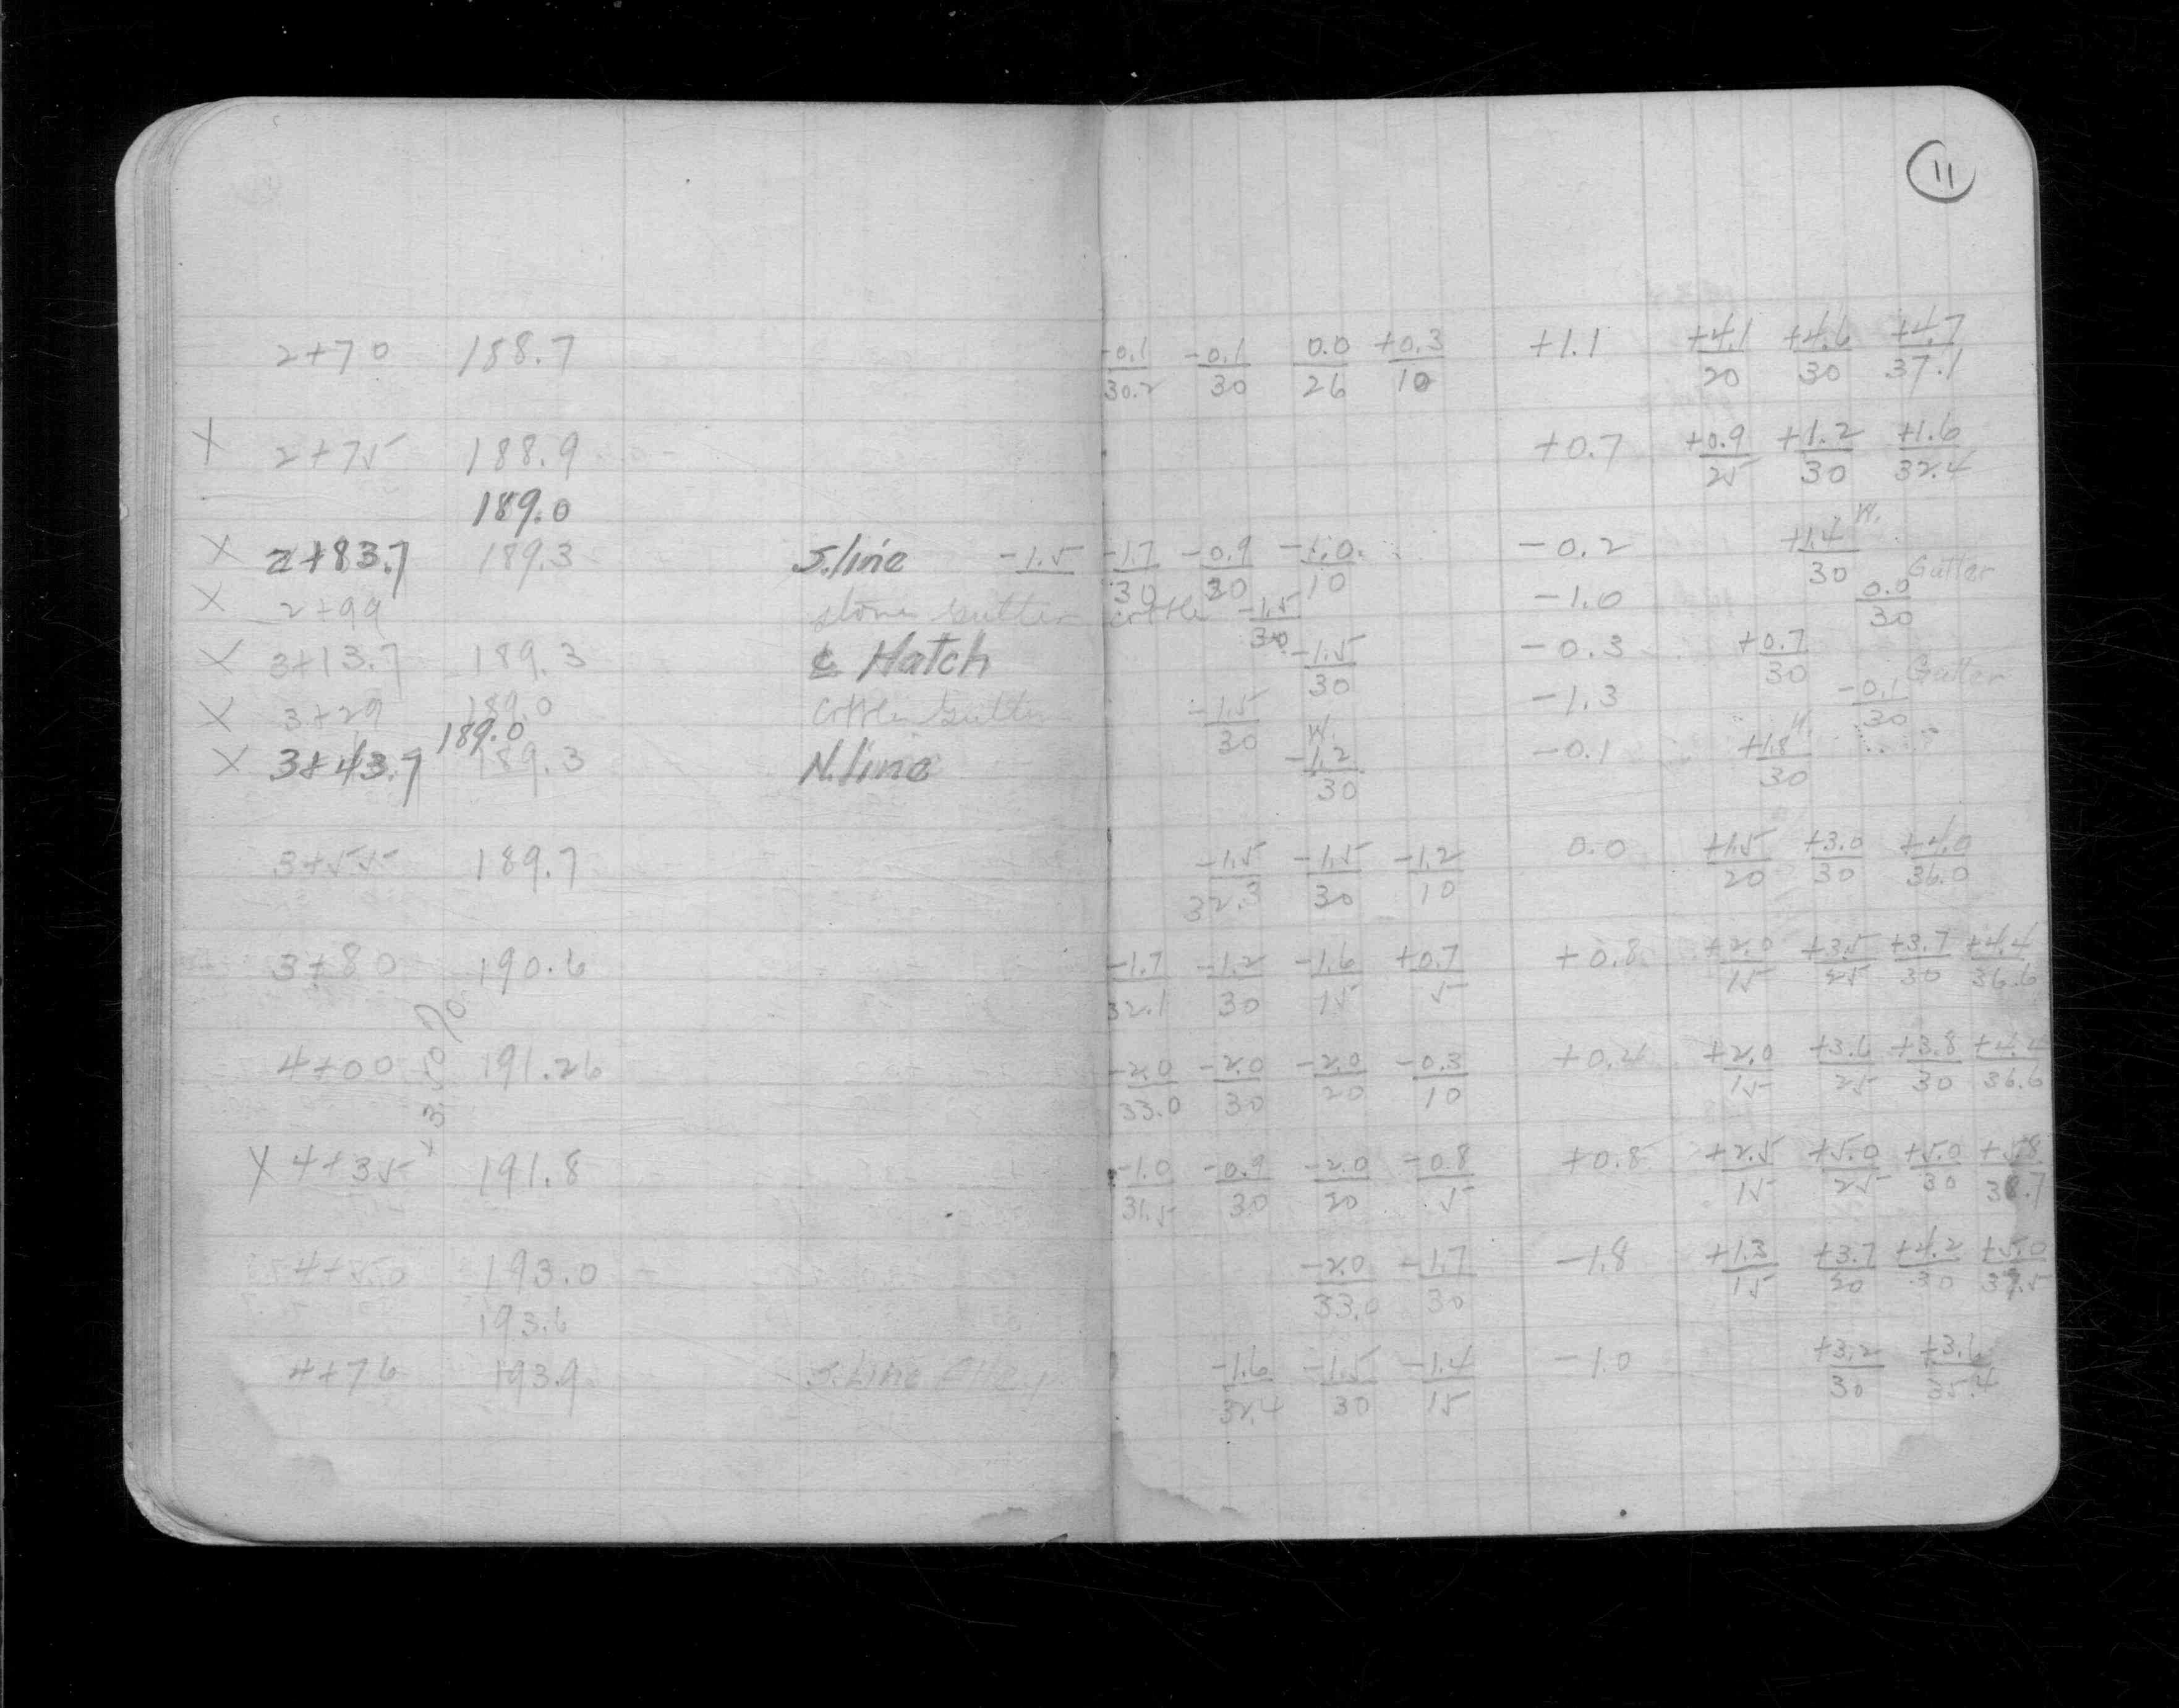 11
2+70 188.7 -0.1/30.2 -0.1/30 0.0/26 +0.3/10 +1.1 +4.1/20 +4.6/30 +4.7/37.1
X 2+75 188.9 +0.7 +0.9/25 +1.2/30 +1.6/32.4
189.0
X 2+83.7 189.3 S.line -1.5 -1.7/30 -0.9/30 -1.0/10 -0.2 +1.4/30 W.
X 2+99 stone gutter -1.5/30 -1.0 0.0/30 Gutter
X 3+13.7 189.3 ℄ Hatch -1.5/30 -0.3 +0.7/30
X 3+29 189.0 Gutter -1.5/30 -1.3 -0.1/30 Gutter
189.0
X 3+43.7 189.3 N.line W. -1.2/30 -0.1 +1.8/30
3+55 189.7 -1.5/32.3 -1.5/30 -1.2/10 0.0 +1.5/20 +3.0/30 +4.0/36.0
3+80 190.6 -1.7/32.1 -1.2/30 -1.6/15 +0.7/5 +0.8 +2.0/15 +3.5/25 +3.7/30 +4.4/36.6
+3.50%
4+00 191.26 -2.0/33.0 -2.0/30 -2.0/20 -0.3/10 +0.4 +2.0/15 +3.6/25 +3.8/30 +4.4/36.6
X 4+35 191.8 -1.0/31.5 -0.9/30 -2.0/20 -0.8/5 +0.8 +2.5/15 +5.0/25 +5.0/30 +5.8/38.7
4+50 193.0 -2.0/33.0 -1.7/30 -1.8 +1.3/15 +3.7/20 +4.2/30 +5.0/37.5
193.6
4+76 193.9 S.Line Alley -1.6/32.4 -1.5/30 -1.4/15 -1.0 +3.2/30 +3.6/35.4